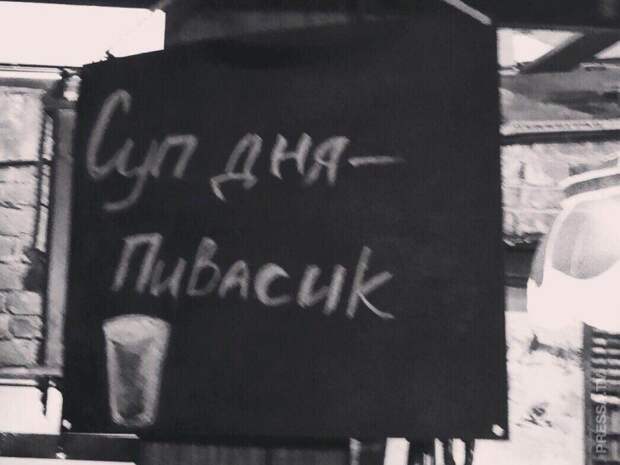 Суп дня-
Пивасик
PRESSA.TV